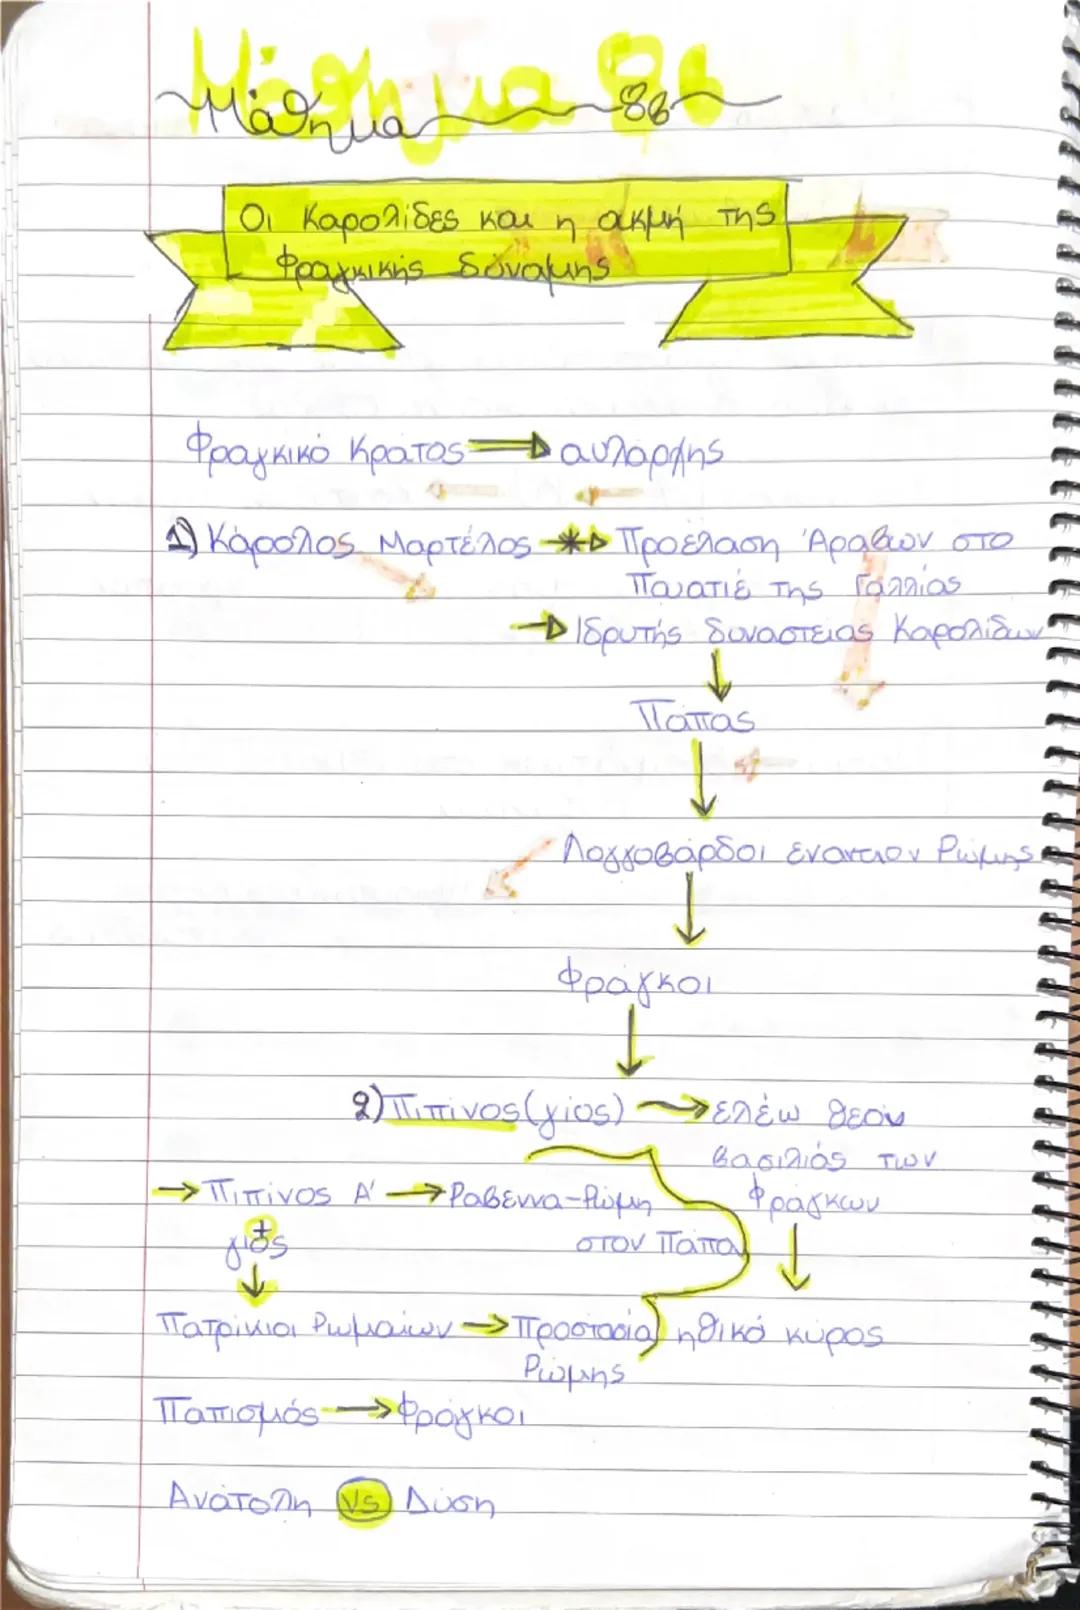 Μάθημα 8β
Οι Καρολίδες και η ακμή της
Φραγκικής δύναμης
Φραγκικό Κράτος → αυλάρχης
1) Κάρολος Μαρτέλος → Προέλαση Αράβων στο
Πουατιέ της Γαλλίας
→ Ιδρυτής δυναστείας Καρολιδών
↓
Πάπας
↓
Λογγοβάρδοι εναντίον Ρώμης
↓
Φράγκοι
↓
2) Πιπίνος (γιος) → ελέω θεού
βασιλιάς των
Φράγκων
→ Πιπίνος Α' → Ραβέννα-Ρώμη
στον Πάπα
+
γιός
↓
Πατρίκιοι Ρωμαίων → Προστασία
Ρώμης
↓
ηθικό κύρος
Παπισμός → Φράγκοι
Ανάτολη vs Δύση